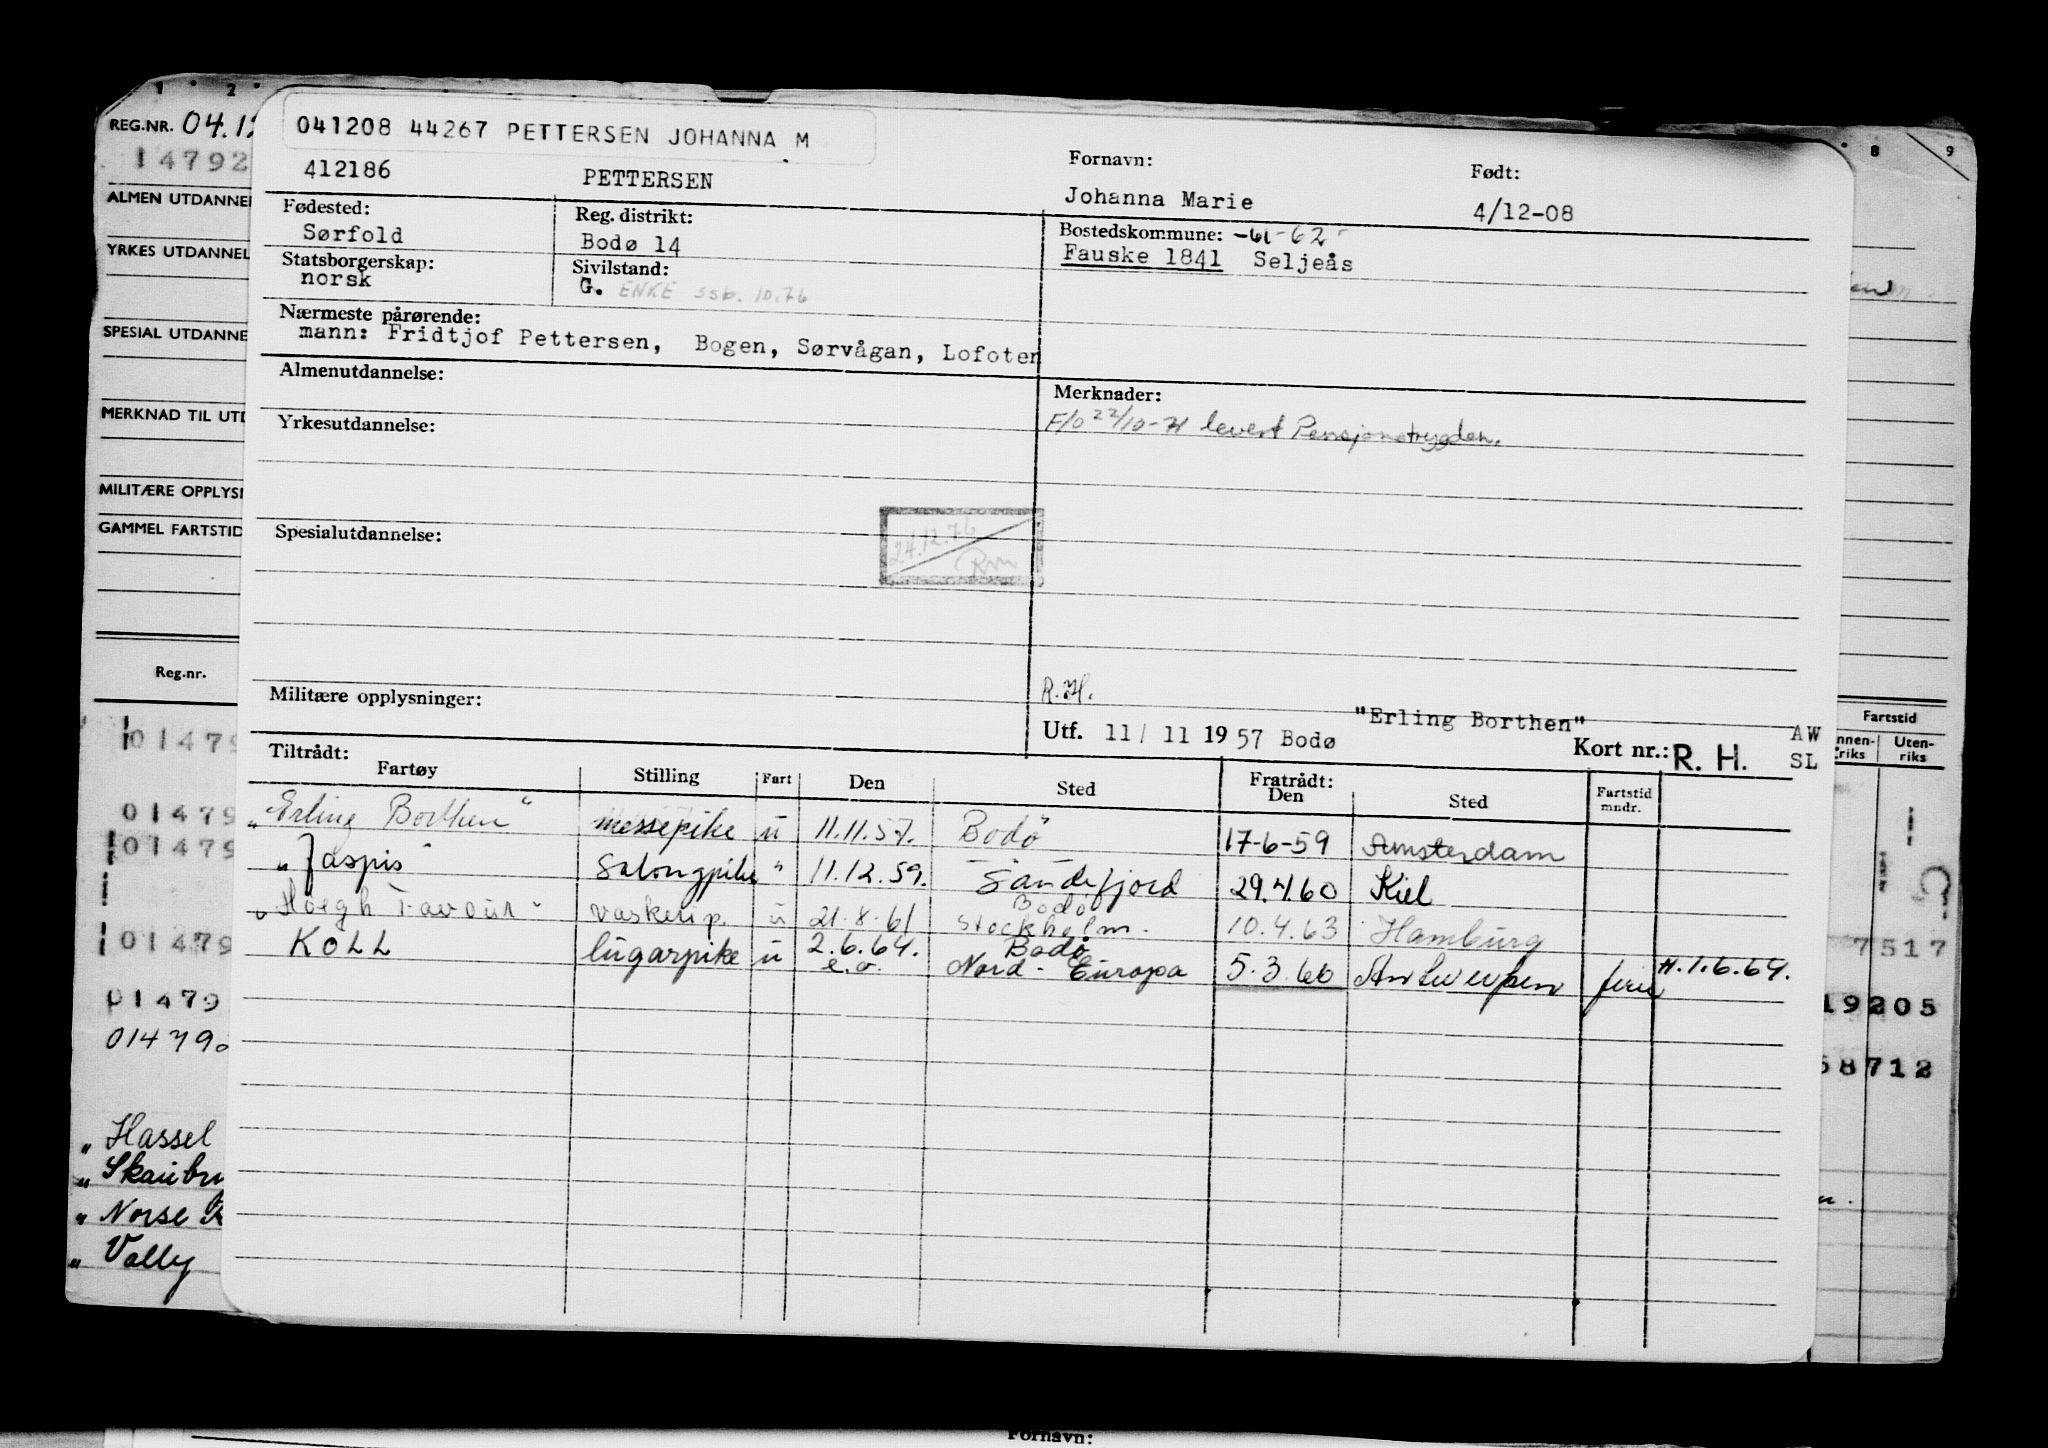 1 2 8 9
REG.NR. 04.12
14792
041208 44267 PETTERSEN JOHANNA M
412186 PETTERSEN
Fornavn: Født:
Johanna Marie 4/12-08
ALMEN UTDANNEL
Fødested: Reg. distrikt: Bostedskommune: -61-62
Sørfold Bodø 14 Fauske 1841 Seljeås
YRKES UTDANNEL
Statsborgerskap: Sivilstand:
norsk G. ENKE ssb. 10.76
Nærmeste pårørende:
mann: Fridtjof Pettersen, Bogen, Sørvågan, Lofoten
SPESIAL UTDANNE
Almenutdannelse: Merknader:
F/O 22/10-71 levert Pensjonstrygden.
MERKNAD TIL UTD
Yrkesutdannelse:
MILITÆRE OPPLYSN
GAMMEL FARTSTID
Spesialutdannelse:
24.12.76
Rm
Reg.nr.
Militære opplysninger: R.H.
"Erling Borthen" AW
Utf. 11/ 11 19 57 Bodø Kort nr.: R. H. SL
Fartstid
Innen-riks Uten-riks
Tiltrådt: Fratrådt:
Fartøy Stilling Fart Den Sted Den Sted Fartstid mndr.
"Erling Borthen" messepike u 11.11.57. Bodø 17-6-59 Amsterdam
"Jaspis" Salongpike " 11.12.59. Sandefjord 29.4.60 Kiel
Bodø
"Höegh Favour" vaskerip. u 21.8.61 Stockholm. 10.4.63 Hamburg
KOLL lugarpike u 2.6.64. Bodø
e.o. Nord-Europa 5.3.66 Antwerpen ferie H.1.6.64.
01479
01479
01479
01479
7517
01479
19205
014790
58712
"Hassel
"Skaubr
"Norse
"Vally
Fornavn: